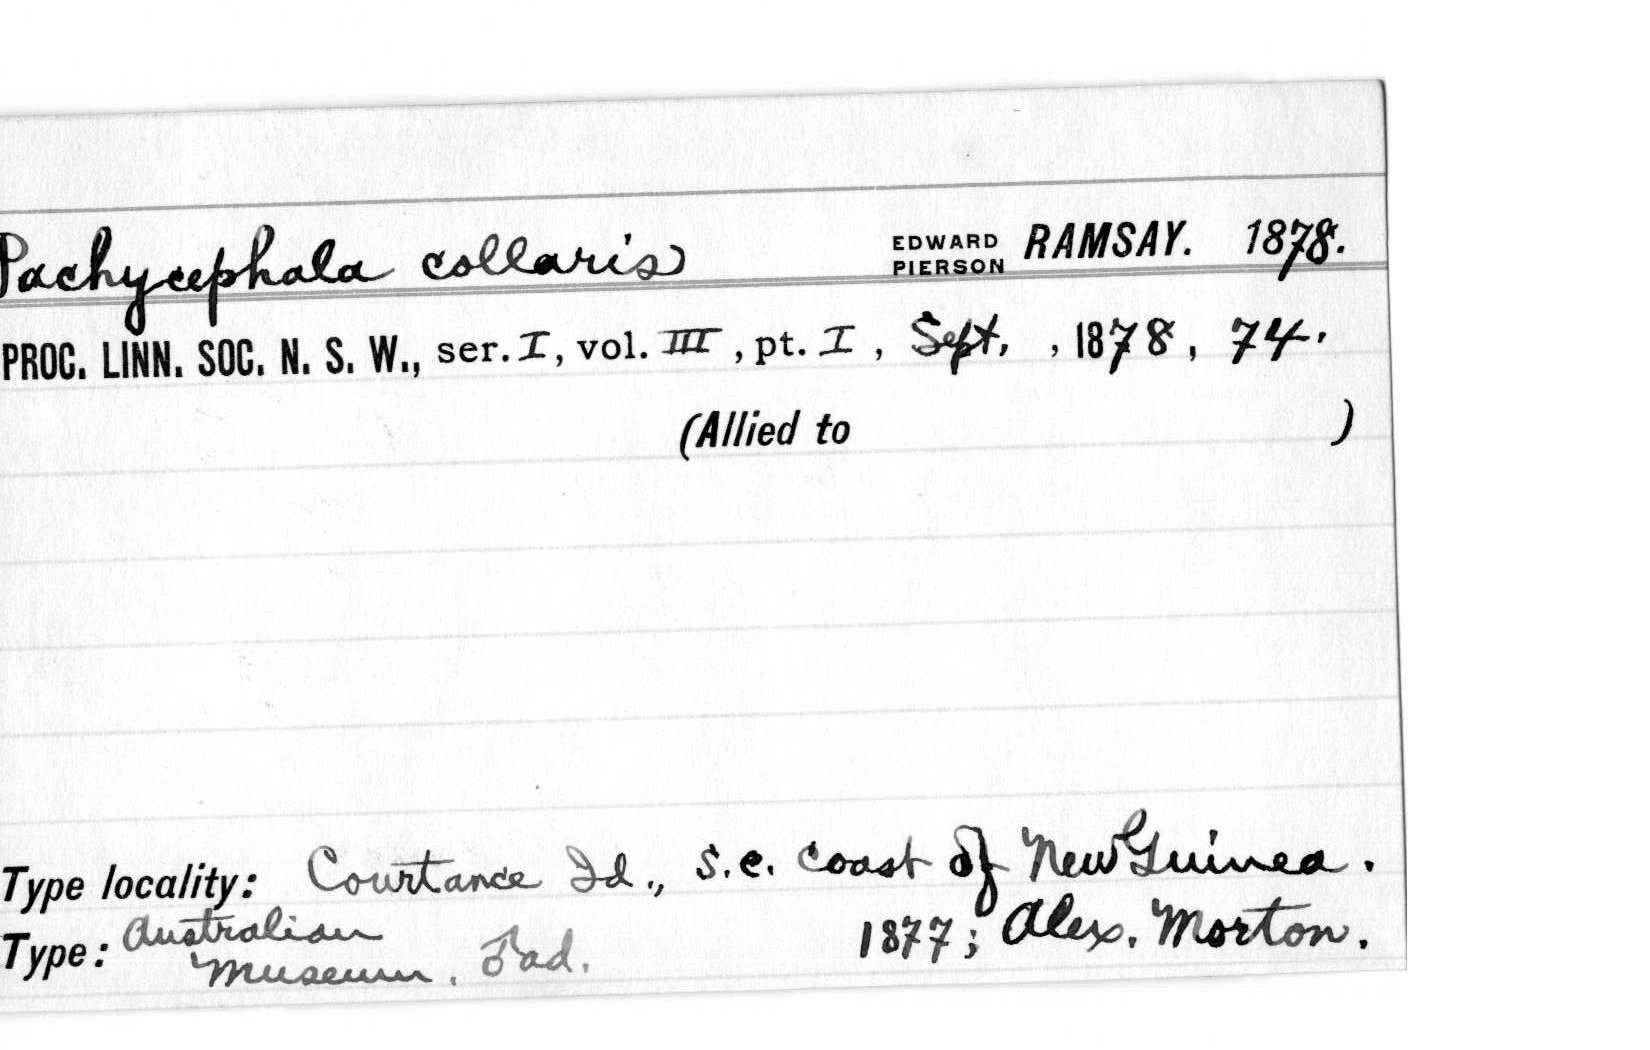 Pachycephala collaris EDWARD PIERSON RAMSAY. 1878.
PROC. LINN. SOC. N. S. W., ser. I, vol. III, pt. I, Sept., 1878, 74.
(Allied to )
Type locality: Courtance Id., S.e. coast of New Guinea.
Type: Australian Museum. ♂ad. 1877; Alex. Morton.